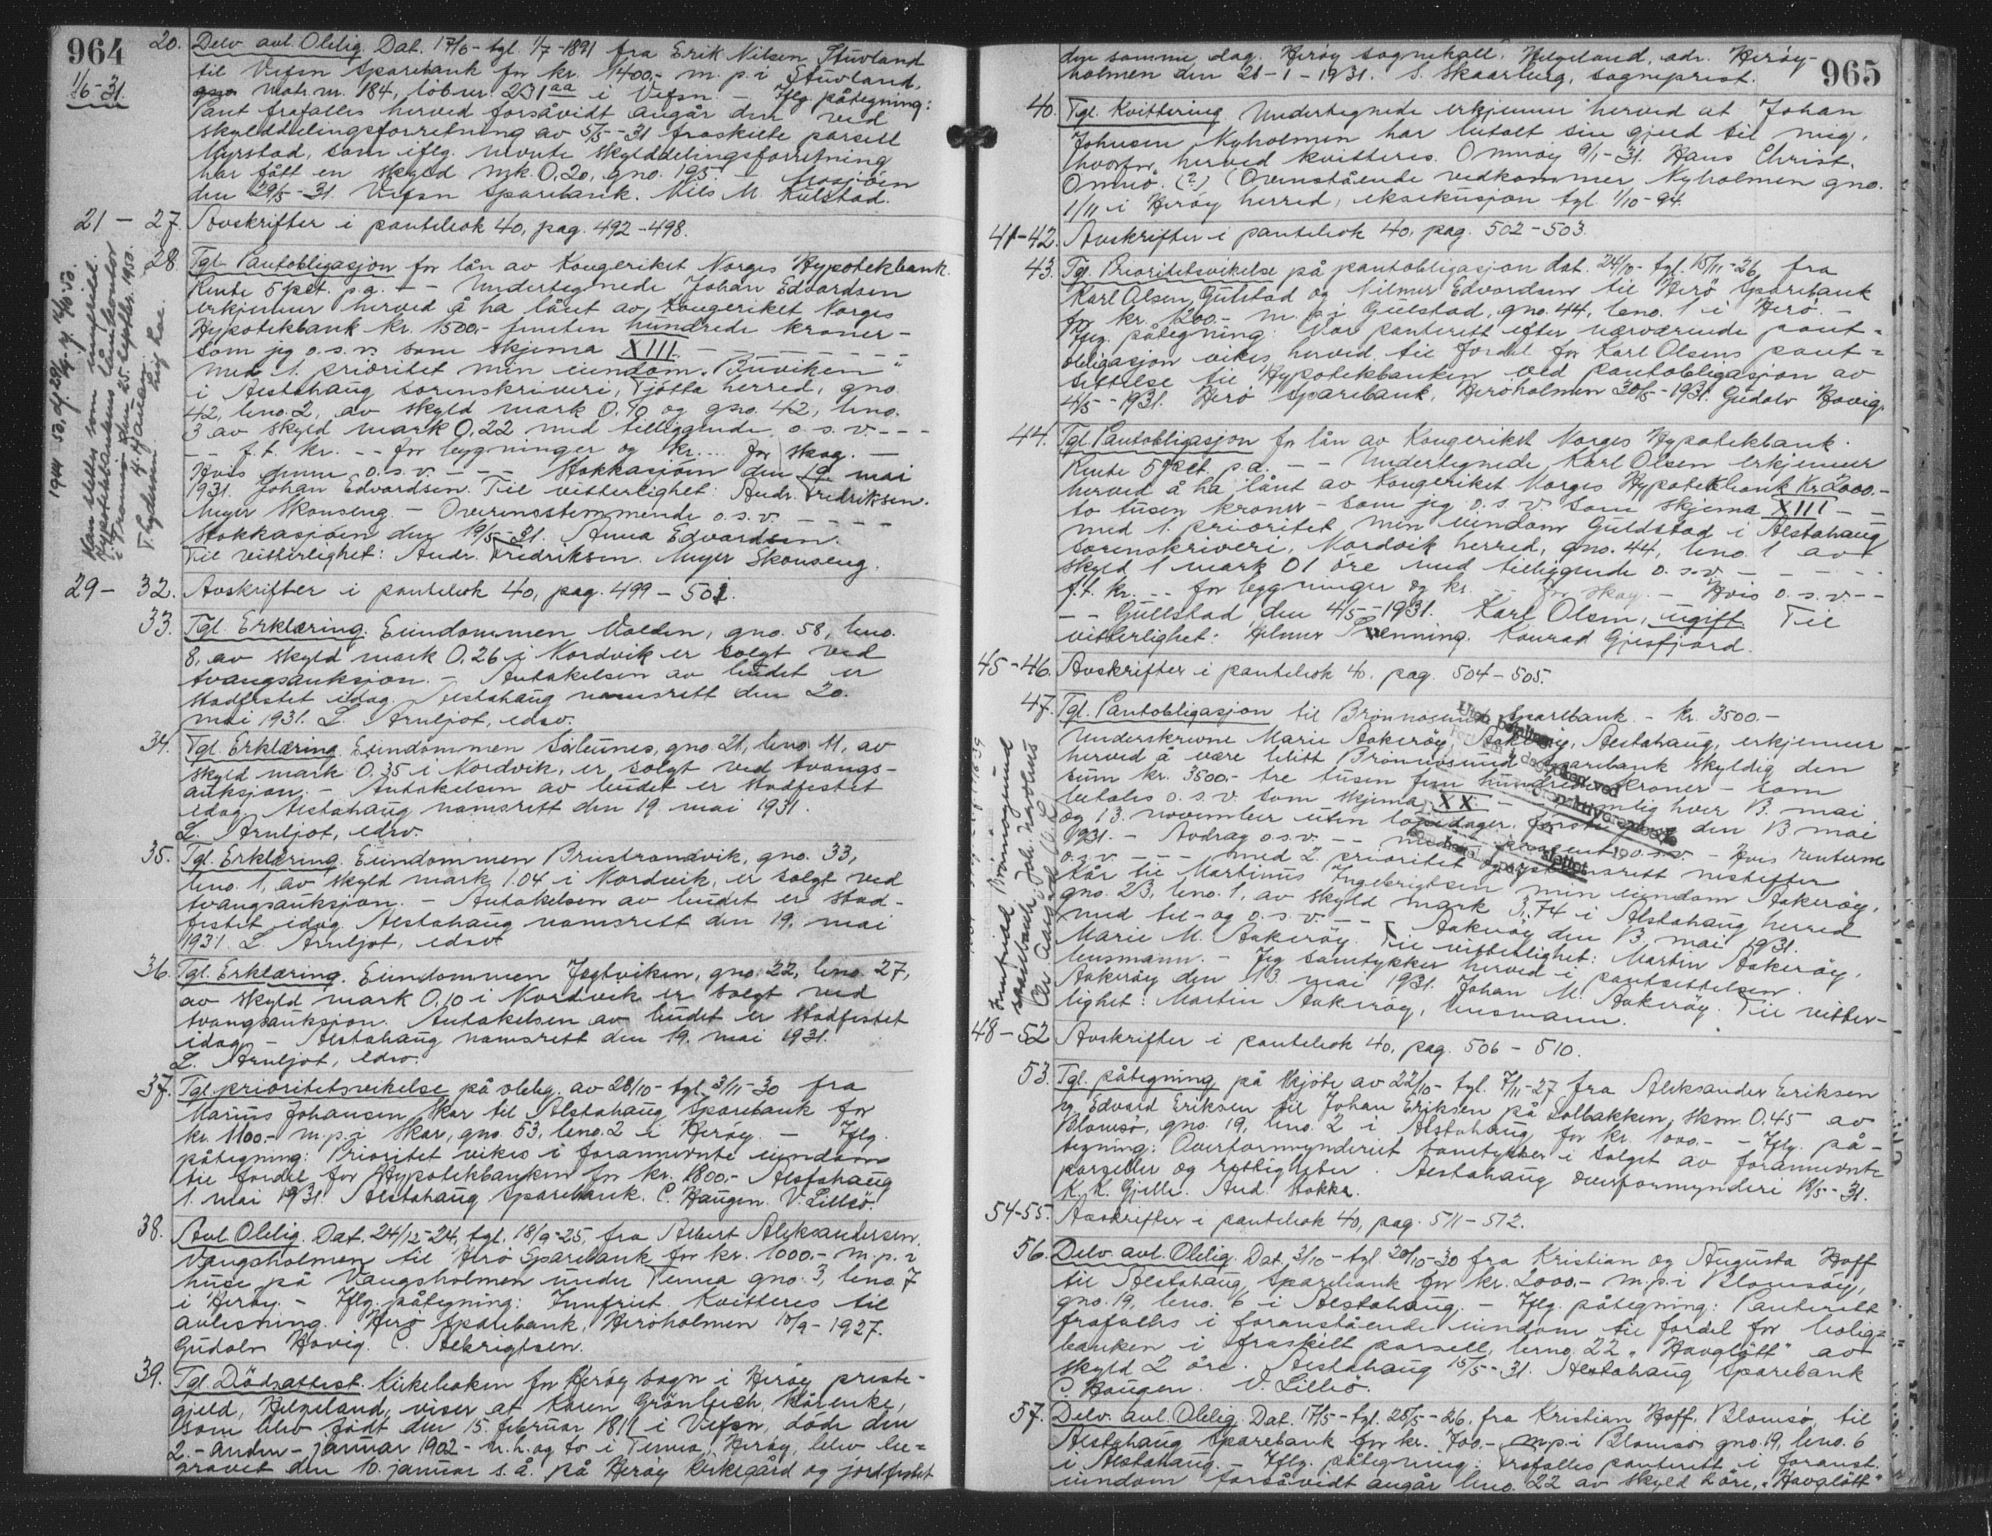 964
1/6-31.
20. Delv. avl. Oblig. Dat. 17/6 - tgl. 1/7-1891 fra Erik Nilsen Stuvland
til Vefsn Sparebank for kr. 1400,- m. p. i Stuvland,
matr. nr. 184, löbnr. 231aa i Vefsn. - Iflg. påtegning:
Pant frafalles herved forsåvidt angår den ved
skylddelingsforretning av 5/5-31 fraskilte parsell
Myrstad, som iflg. nevnte skylddelingsforretning
har fått en skyld mrk. 0,20, gno. 195. - Mosjöen
den 29/5-31. Vefsn Sparebank. Nils M. Kulstad.
21 - 27. Avskrifter i pantebok 40, pag. 492-498.
28. Tgl. Pantobligasjon for lån av Kongeriket Norges Hypotekbank.
Rente 5 pct. p.a. - - Undertegnede Johan Edvardsen
erkjenner herved å ha lånt av Kongeriket Norges
Hypotekbank kr. 1500,- femten hundrede kroner -
som jeg o.s.v. som skjema XIII. - - - - -
med 1. prioritet min eiendom "Buviken"
i Alstahaug sorenskriveri, Tjötta herred, gno.
42, bno. 2, av skyld mark 0,70 og gno. 42, bno.
3 av skyld mark 0,22 med tilliggende o.s.v. - - -
- - f.t. kr. - - for bygninger og kr.... for skog. -
Hvis denne o.s.v. - - - Stokkasjöen den 19. mai
1931. Johan Edvardsen. Til vitterlighet: Andr. Fredriksen.
Meyer Skonseng. - Overensstemmende o.s.v. - - - -
Stokkasjöen den 19/5-31. Anna Edvardsen.
Til vitterlighet: Andr. Fredriksen. Meyer Skonseng.
Kan slettes som innfridd.
Hypotekbankens lånekontor
i Tromsö den 25. septbr. 1950.
29 - 32. Avskrifter i pantebok 40, pag. 499 - 501.
33. Tgl. Erklæring. Eiendommen Volden, gno. 58, bno.
8, av skyld mark 0,26 i Nordvik er solgt ved
tvangsauksjon. - Antakelsen av budet er
stadfestet idag. Alstahaug namsrett den 20.
mai 1931. L. Arnljot, edsv.
34. Tgl. Erklæring. Eiendommen Silunes, gno. 21, bno. 11, av
skyld mark 0,35 i Nordvik, er solgt ved tvangs-
auksjon. - Antakelsen av budet er stadfestet
idag. Alstahaug namsrett den 19. mai 1931.
L. Arnljot, edsv.
35. Tgl. Erklæring. Eiendommen Brustrandvik, gno. 33,
bno. 1, av skyld mark 1.04 i Nordvik, er solgt ved
tvangsauksjon. - Antakelsen av budet er stad-
festet idag. Alstahaug namsrett den 19. mai
1931. L. Arnljot, edsv.
36. Tgl. Erklæring. Eiendommen Jegtviken, gno. 22, bno. 27,
av skyld mark 0,10 i Nordvik er solgt ved
tvangsauksjon. Antakelsen av budet er stadfestet
idag. - Alstahaug namsrett den 19. mai 1931.
L. Arnljot, edsv.
37. Tgl. prioritetsvikelse på oblig. av 28/10 - tgl. 3/11-30 fra
Marius Johansen Skar til Alstahaug Sparebank for
kr. 1100,- m.p.i Skar, gno. 53, bno. 2 i Heröy. - Iflg.
påtegning: Prioritet vikes i forannevnte eiendom
til fordel for Hypotekbanken for kr. 1800,- Alstahaug
1. mai 1931. Alstahaug Sparebank. C. Haugen. V. Lillesö.
38. Avl. Oblig. Dat. 24/12-24, tgl. 18/9-25, fra Albert Aleksandersen,
Vangsholmen til Herö Sparebank for kr. 1000,- m.p.i
huse på Vangsholmen under Tenna gno. 3, bno. 7
i Heröy. - Iflg. påtegning: Innfriet. Kvitteres til
avlesning. Herö Sparebank, Heröholmen 10/9-1927.
Gudolv Hovig. C. Albrigtsen.
39. Tgl. Dödsattest. Kirkeboken for Heröy sogn i Heröy preste-
gjeld, Helgeland, viser at Karen Grönbech, kårenke,
som blev födt den 15. februar 1811 i Vefsn, döde den
2. - anden - januar 1902 - n.h. og to i Tenna, Heröy, blev be-
gravet den 10. januar s.å. på Heröy kirkegård og jordfestet
965
den samme dag. Heröy sognekall, Helgeland, adr. Heröy-
holmen den 21-1-1931. S. Skaarberg, sogneprest.
40. Tgl. Kvittering. Undertegnede erkjenner herved at Johan
Johnsen Nyholmen har betalt sin gjeld til mig,
hvorfor herved kvitteres. Omnöy 9/1-31. Hans Christ.
Omnö. (?) (Ovenstående vedkommer Nyholmen gno.
1/11 i Heröy herred, eksekusjon tgl 1/10-94.
41-42. Avskrifter i pantebok 40, pag. 502-503.
43. Tgl. Prioritetsvikelse på pantobligasjon dat. 24/10 - tgl. 15/11-26, fra
Karl Olsen, Gulstad og Hilmer Edvardsen til Herö Sparebank
for kr. 1200,- m.p.i Gulstad, gno. 44, bno. 1 i Herö. -
Iflg. påtegning: Vår panterett efter nærværende pant-
obligasjon vikes herved til fordel for Karl Olsens pant-
settelse til Hypotekbanken ved pantobligasjon av
4/5-1931. Herö Sparebank, Heröholmen 30/5-1931. Gudolv Hovig.
44. Tgl. Pantobligasjon for lån av Kongeriket Norges Hypotekbank.
Rente 5 pct. p.a. - - Undertegnede Karl Olsen erkjenner
herved å ha lånt av Kongeriket Norges Hypotekbank kr. 2000.-
to tusen kroner - som jeg o.s.v. som skjema XIII - -
med 1. prioritet min eiendom Guldstad i Alstahaug
sorenskriveri, Nordvik herred, gno. 44, bno. 1 av
skyld 1 mark 01 öre med tilliggende o.s.v. - - - - -
f.t. kr. - - for bygninger og kr. - - for skog. - Hvis o.s.v. - -
- - Gullstad, den 4/5-1931. Karl Olsen, ugift. Til
vitterlighet: Hilmer Svenning. Konrad Gjesfjord.
45-46. Avskrifter i pantebok 40, pag. 504-505.
47. Tgl. Pantobligasjon til Brönnösund Sparebank. - kr. 3500.-
Underskrevne Marie Aakeröy, Aakeröy, Alstahaug, erkjenner
herved å være blitt Brönnösund Sparebank skyldig den
sum kr. 3500,- tre tusen fem hundrede kroner - som
betales o.s.v. som skjema XX. - nemlig hver 13. mai
og 13. november uten löpedager, förste den 13 mai
1931. - Avdrag o.s.v. - - procent o.s.v. - Hvis renterne
o.s.v. - - - med 2. prioritet oprykningsrett nestefter
kår til Martinus Ingebrigtsen min eiendom Aakeröy,
gno. 23, bno. 1, av skyld mark 3,74 i Alstahaug herred
med til- og o.s.v. - - Aakeröy den 13. mai 1931.
Marie M. Aakeröy. Til vitterlighet: Martin Aakeröy,
lensmann. - Jeg samtykker herved i pantsettelsen.
Aakeröy den 13. mai 1931. Johan M. Aakeröy. Til vitter-
lighet: Martin Aakeröy, lensmann.
Innfridd Brönnöysund
sparebank
48-52 Avskrifter i pantebok 40, pag. 506 - 510.
53. Tgl. påtegning på skjöte av 22/10 - tgl. 7/11-27 fra Aleksander Eriksen
og Edvard Eriksen til Johan Eriksen på Solbakken, skm 0.45 av
Blomsö, gno. 19, bno. 2 i Alstahaug for kr. 1000.- - Iflg. på-
tegning: Overformynderiet samtykker i salget av forannevnte
parseller og rettigheter. Alstahaug overformynderi 18/5-31.
K. K. Gjelle. And. Stokka.
54-55. Avskrifter i pantebok 40, pag. 511-512.
56. Delv. avl. Oblig. Dat. 3/10 - tgl. 20/10-30 fra Kristian og Augusta Hoff
til Alstahaug Sparebank for kr. 2000.- m.p.i Blomsöy,
gno. 19, bno. 6 i Alstahaug. - Iflg. påtegning: Panterett
frafalles i foranstående eiendom til fordel for bolig-
banken i fraskilt parsell, bno. 22 "Havglött" av
skyld 2 öre. Alstahaug 15/5-31. Alstahaug Sparebank
C. Haugen. V. Lillesö.
57. Delv. avl. Oblig. Dat. 17/5 - tgl. 25/5-26, fra Kristian Hoff, Blomsö, til
Alstahaug Sparebank for kr. 700.- m.p.i Blomsö gno. 19, bno. 6
i Alstahaug. - Iflg. påtegning: Frafalles panterett i foranst.
eiendom forsåvidt angår bno. 22 av skyld 2 öre, "Havglött"